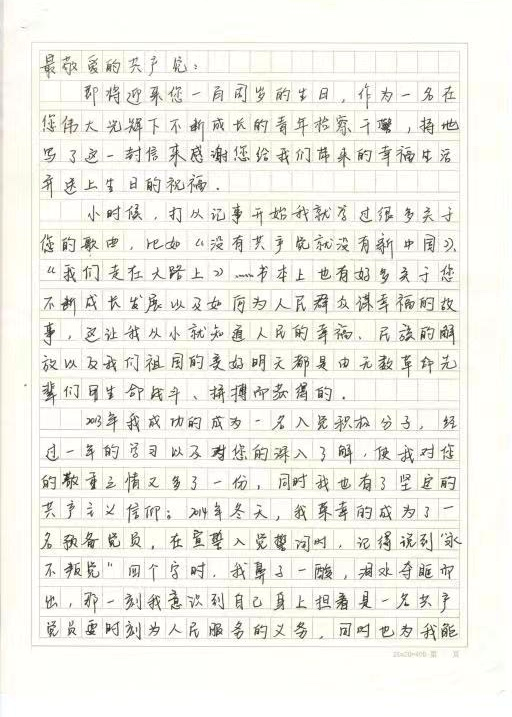 最敬爱的共产党：
即将迎来您一百周岁的生日，作为一名在
您伟大光辉下不断成长的青年检察干警，特地
写了这一封信来感谢您给我们带来的幸福生活
并送上生日的祝福。
小时候，打从记事开始我就学过很多关于
您的歌曲，比如《没有共产党就没有新中国》、
《我们走在大路上》……书本上也有好多关于您
不断成长发展以及如何为人民群众谋幸福的故
事，这让我从小就知道人民的幸福、民族的解
放以及我们祖国的美好明天都是由无数革命先
辈们用生命战斗、拼搏而获得的。
2013年我成功的成为一名入党积极分子，经
过一年的学习以及对您的深入了解，使我对您
的敬重之情又多了一份，同时我也有了坚定的
共产主义信仰；2014年冬天，我荣幸的成为了一
名预备党员，在宣誓入党誓词时，记得说到“永
不叛党”四个字时，我鼻子一酸，泪水夺眶而
出，那一刻我意识到自己身上担着是一名共产
党员要时刻为人民服务的义务，同时也为我能
20×20=400 第 页